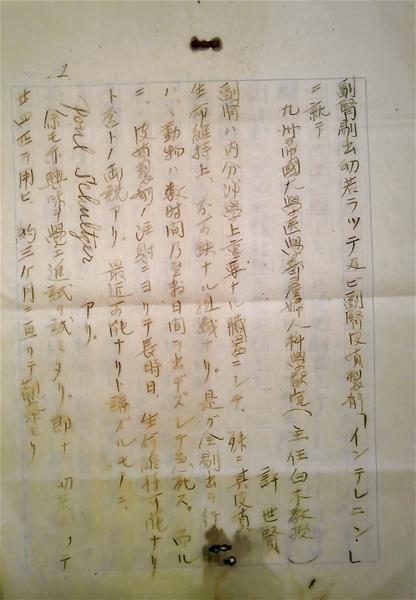 副腎剔出幼若ラッテ及ビ副腎皮質製剤「インテレニン」
ニ就テ
九州帝國大學醫學部産婦人科學教室(主任白木教授)
許世賢
副腎ハ内分泌學上重要ナル臓器ニシテ、殊ニ其皮質
生命維持上、不可缺ナル組織ナリ。是ガ全剔出ヲ行
ハバ動物ハ数時間乃至数日間ヲ出デズシテ死ス。而ル
ニ、皮質製剤ノ注射ニヨリテ長時日、生存維持可能ナリ
ト否トノ両説アリ。最近可能ナリト講ズルモノニ、
Poul Schultzer アリ。
余モ亦興味ヲ 追試ヲ試ミタリ。即チ幼若 ッテ
廿四匹ヲ用ヒ、約三ケ月ニ亘リテ
1